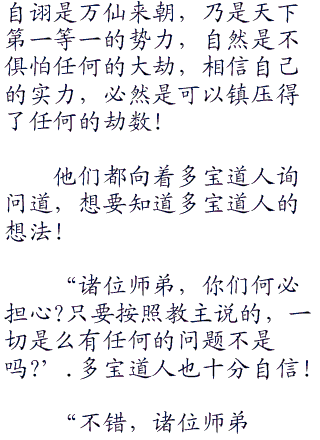 自诩是万仙来朝，乃是天下
第一等一的势力，自然是不
俱怕任何的大劫，相信自己
的实力，必然是可以镇压得
了任何的劫数！
他们都向着多宝道人询
问道，想要知道多宝道人的
想法！
“诸位师弟，你们何必
担心?只要按照教主说的，一
切是么有任何的问题不是
吗?’.多宝道人也十分自信！
“不错，诸位师弟